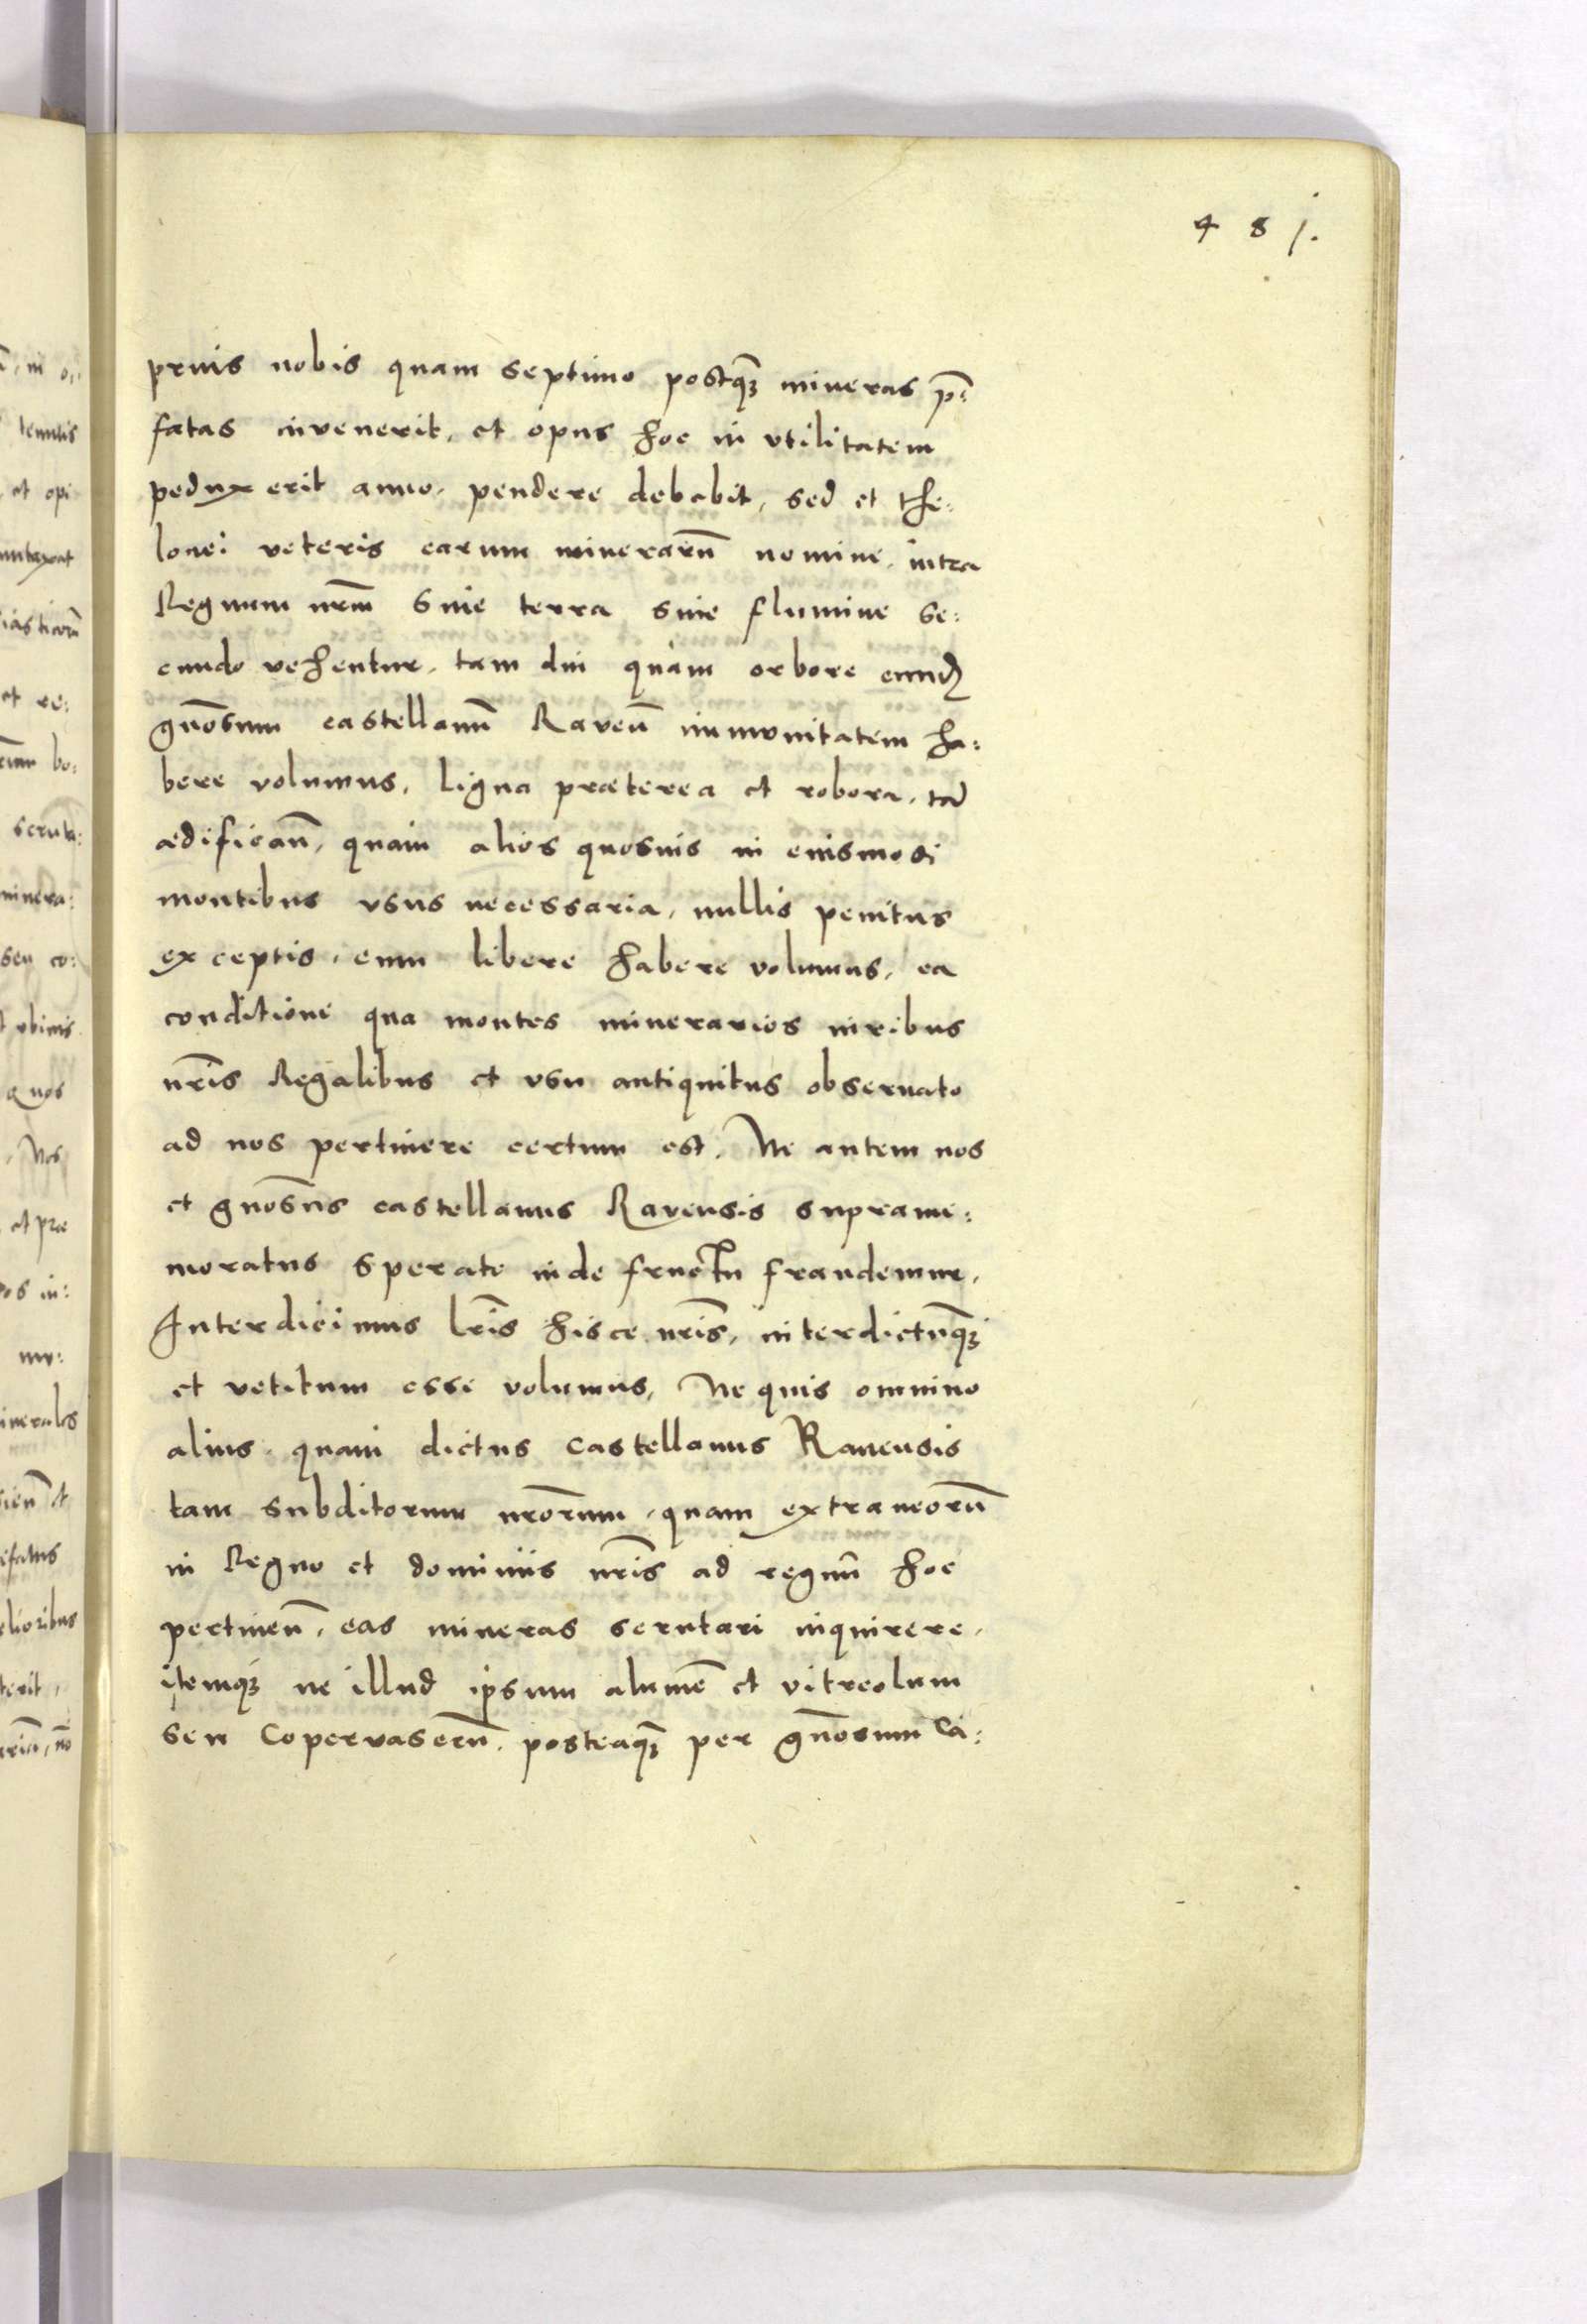 481.
prius nobis quam septimo postq̃ꝫ mineras p̃:
fatas invenerit, et opus hoc in vtilitatem
peduxerit anno, pendere debebit, sed et the:
lonei veteris earum minerarũ nomine, intra
Regnum nr̃m siue terra siue flumine se:
cundo vehentur, tam diu quàm orbore eund
gñosum castellanũ Raveñ immunitatem ha:
bere volumus, Ligna præterea et robora, tã
ædificañ, quàm alios quosuis in eiusmodi
montibus vsus necessaria, nullis penitus
exceptis, eum libere habere volumus, ea
conditione qua montes minerarios iuribus
nr̃is Regalibus et vsu antiquitus obseruato
ad nos pertinere certum est. Ne autem nos
et gñosus castellanus Ravensis suprame:
moratus sperate inde fructu fraudemur,
Interdicimus lr̃is hisce nr̃is, interdictũqꝫ
et vetitum esse volumus, Ne quis omnino
alius, quam dictus castellanus Rauensis
tam subditorum nr̃orum, quam extraneorũ
in Regno et dominiis nr̃is ad regnũ hoc
pertineñ, eas mineras scrutari inquirere,
itemqꝫ ne illud ipsum alumẽ et vitreolum
seu Copervaserũ, posteaq̃ꝫ per gñosum Ca: